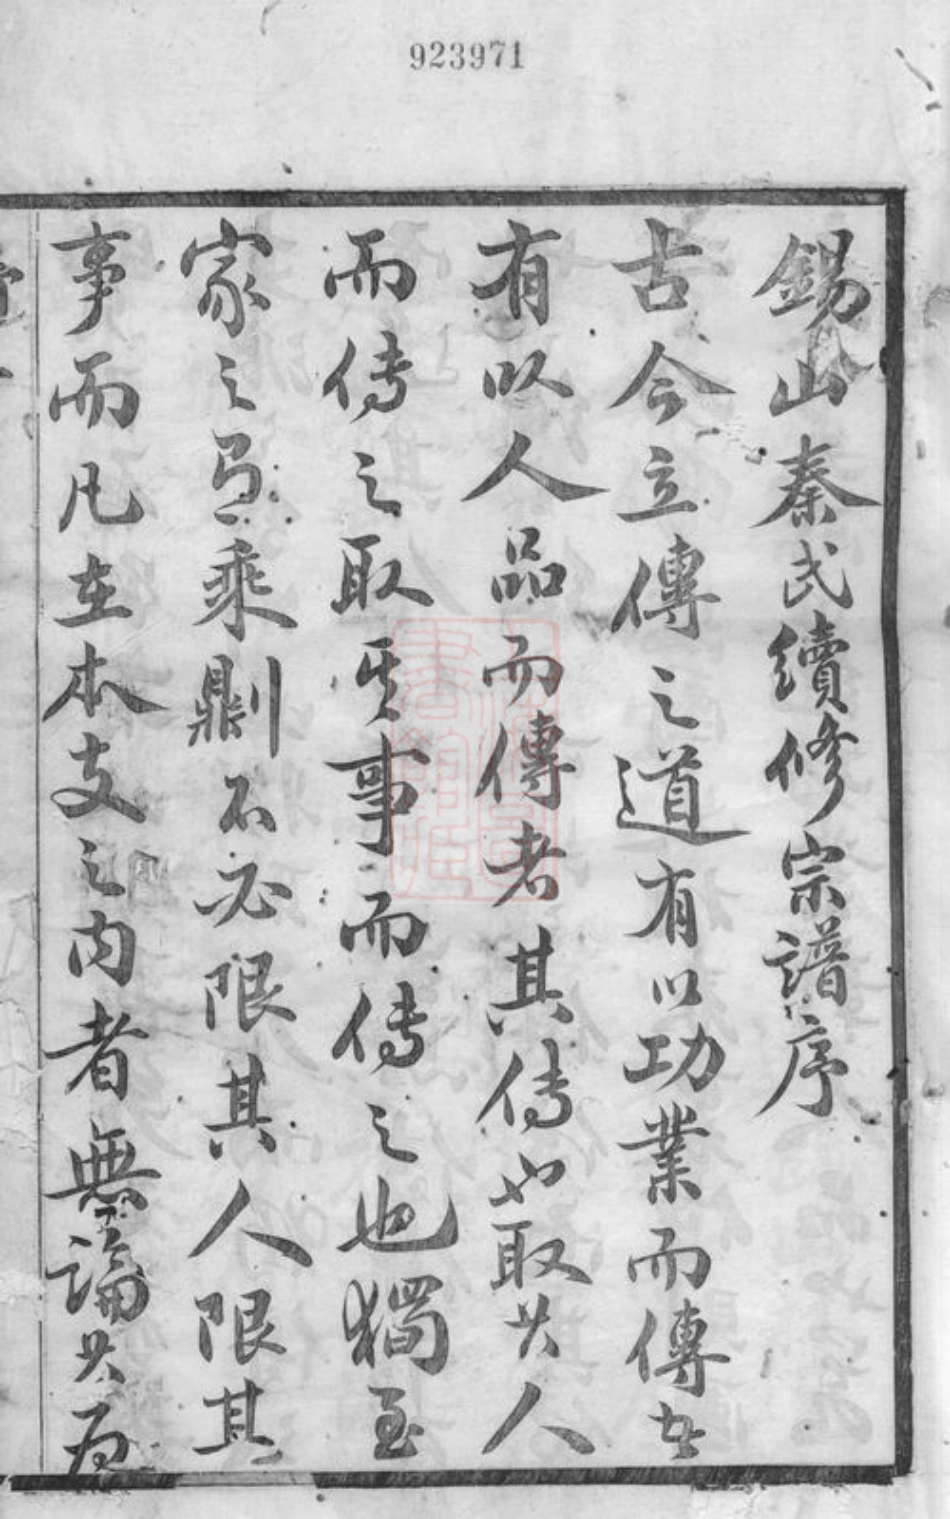 923971
錫山秦氏續修宗譜序
古今立傳之道有以功業而傳者
有以人品而傳者其傳也取其人
而傳之取其事而傳之也獨至
家之有乘則不必限其人限其
事而凡在本支之内者無論其爲